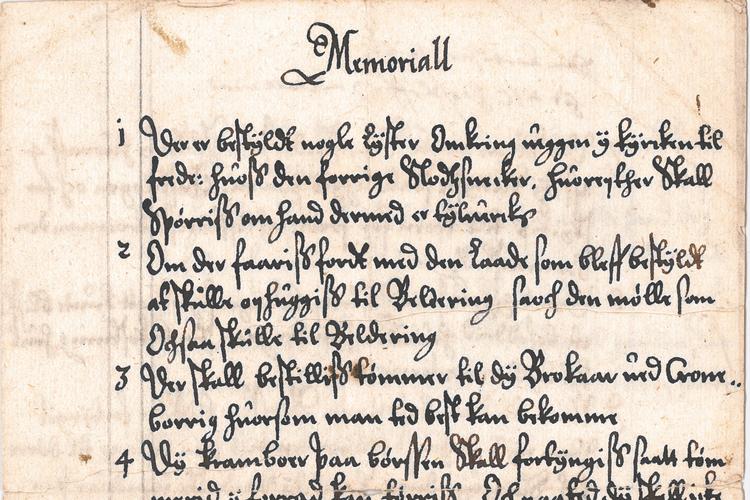 Memoriall
1 Der er bestyldt nogle Lyster Omkring ueggen y kyrcken til
frede: huoss den forrige Slodhsnecker, huoreyther Skall
Spörriss om hand dermed er tyluercks
2 Om der faariss fordt med den Laade som bleff bestyldt
at skulle ophuggiss til Beldering saoch den mølle som
Ochsaa skulle til Beldering
3 Der skall bestilliss tømmer til dy Brokaar ued Crone..
borrig huorsom man ted best kan bekomme
4 Dy kramboer paa børssen Skall fortyngiss saatt tøm
kan Och